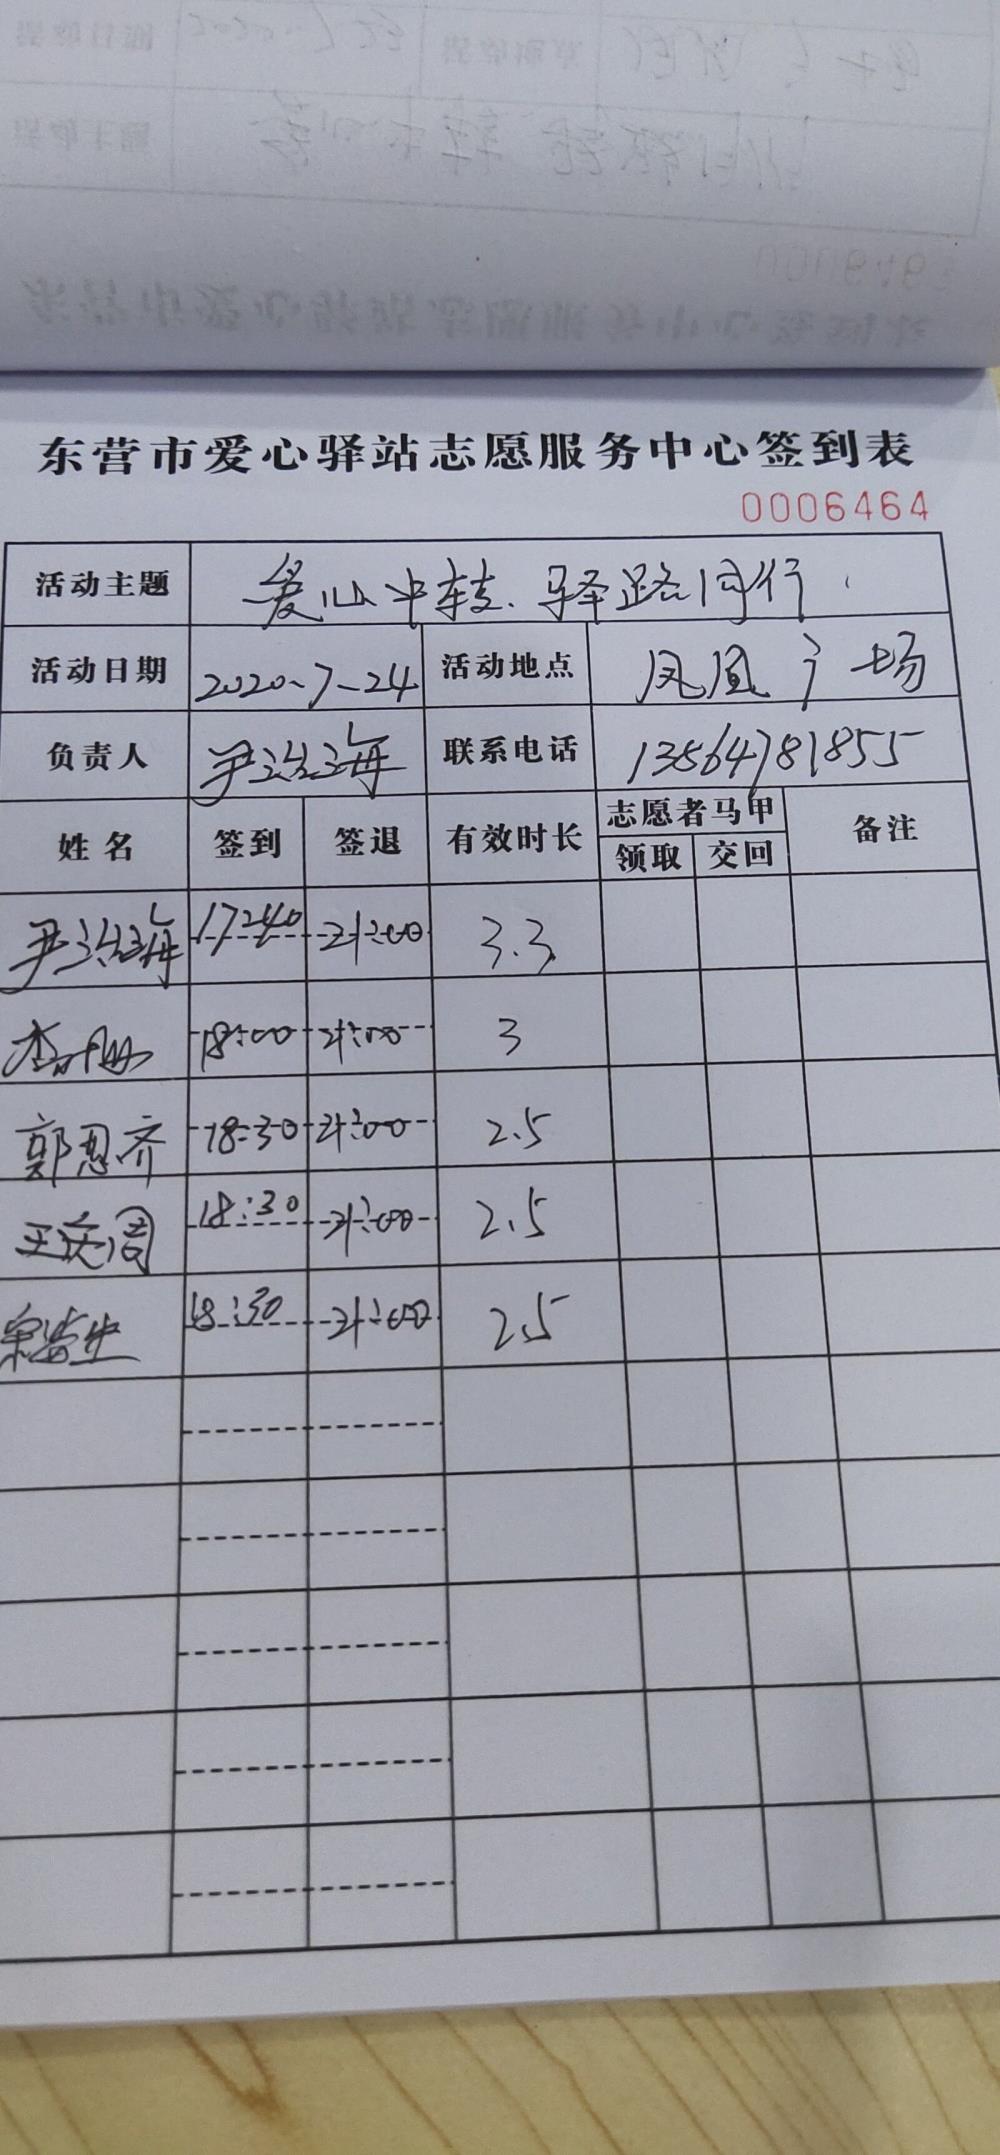 东营市爱心驿站志愿服务中心签到表
0006464
活动主题 爱心中转、驿路同行
活动日期 2020-7-24 活动地点 凤凰广场
负责人 尹洪海 联系电话 13864781855
姓名 签到 签退 有效时长 志愿者马甲 备注
领取 交回
尹洪海 17:40 21:00 3.3
18:00 21:00 3
郭恩齐 18:30 21:00 2.5
18:30 21:00 2.5
18:30 21:00 2.5